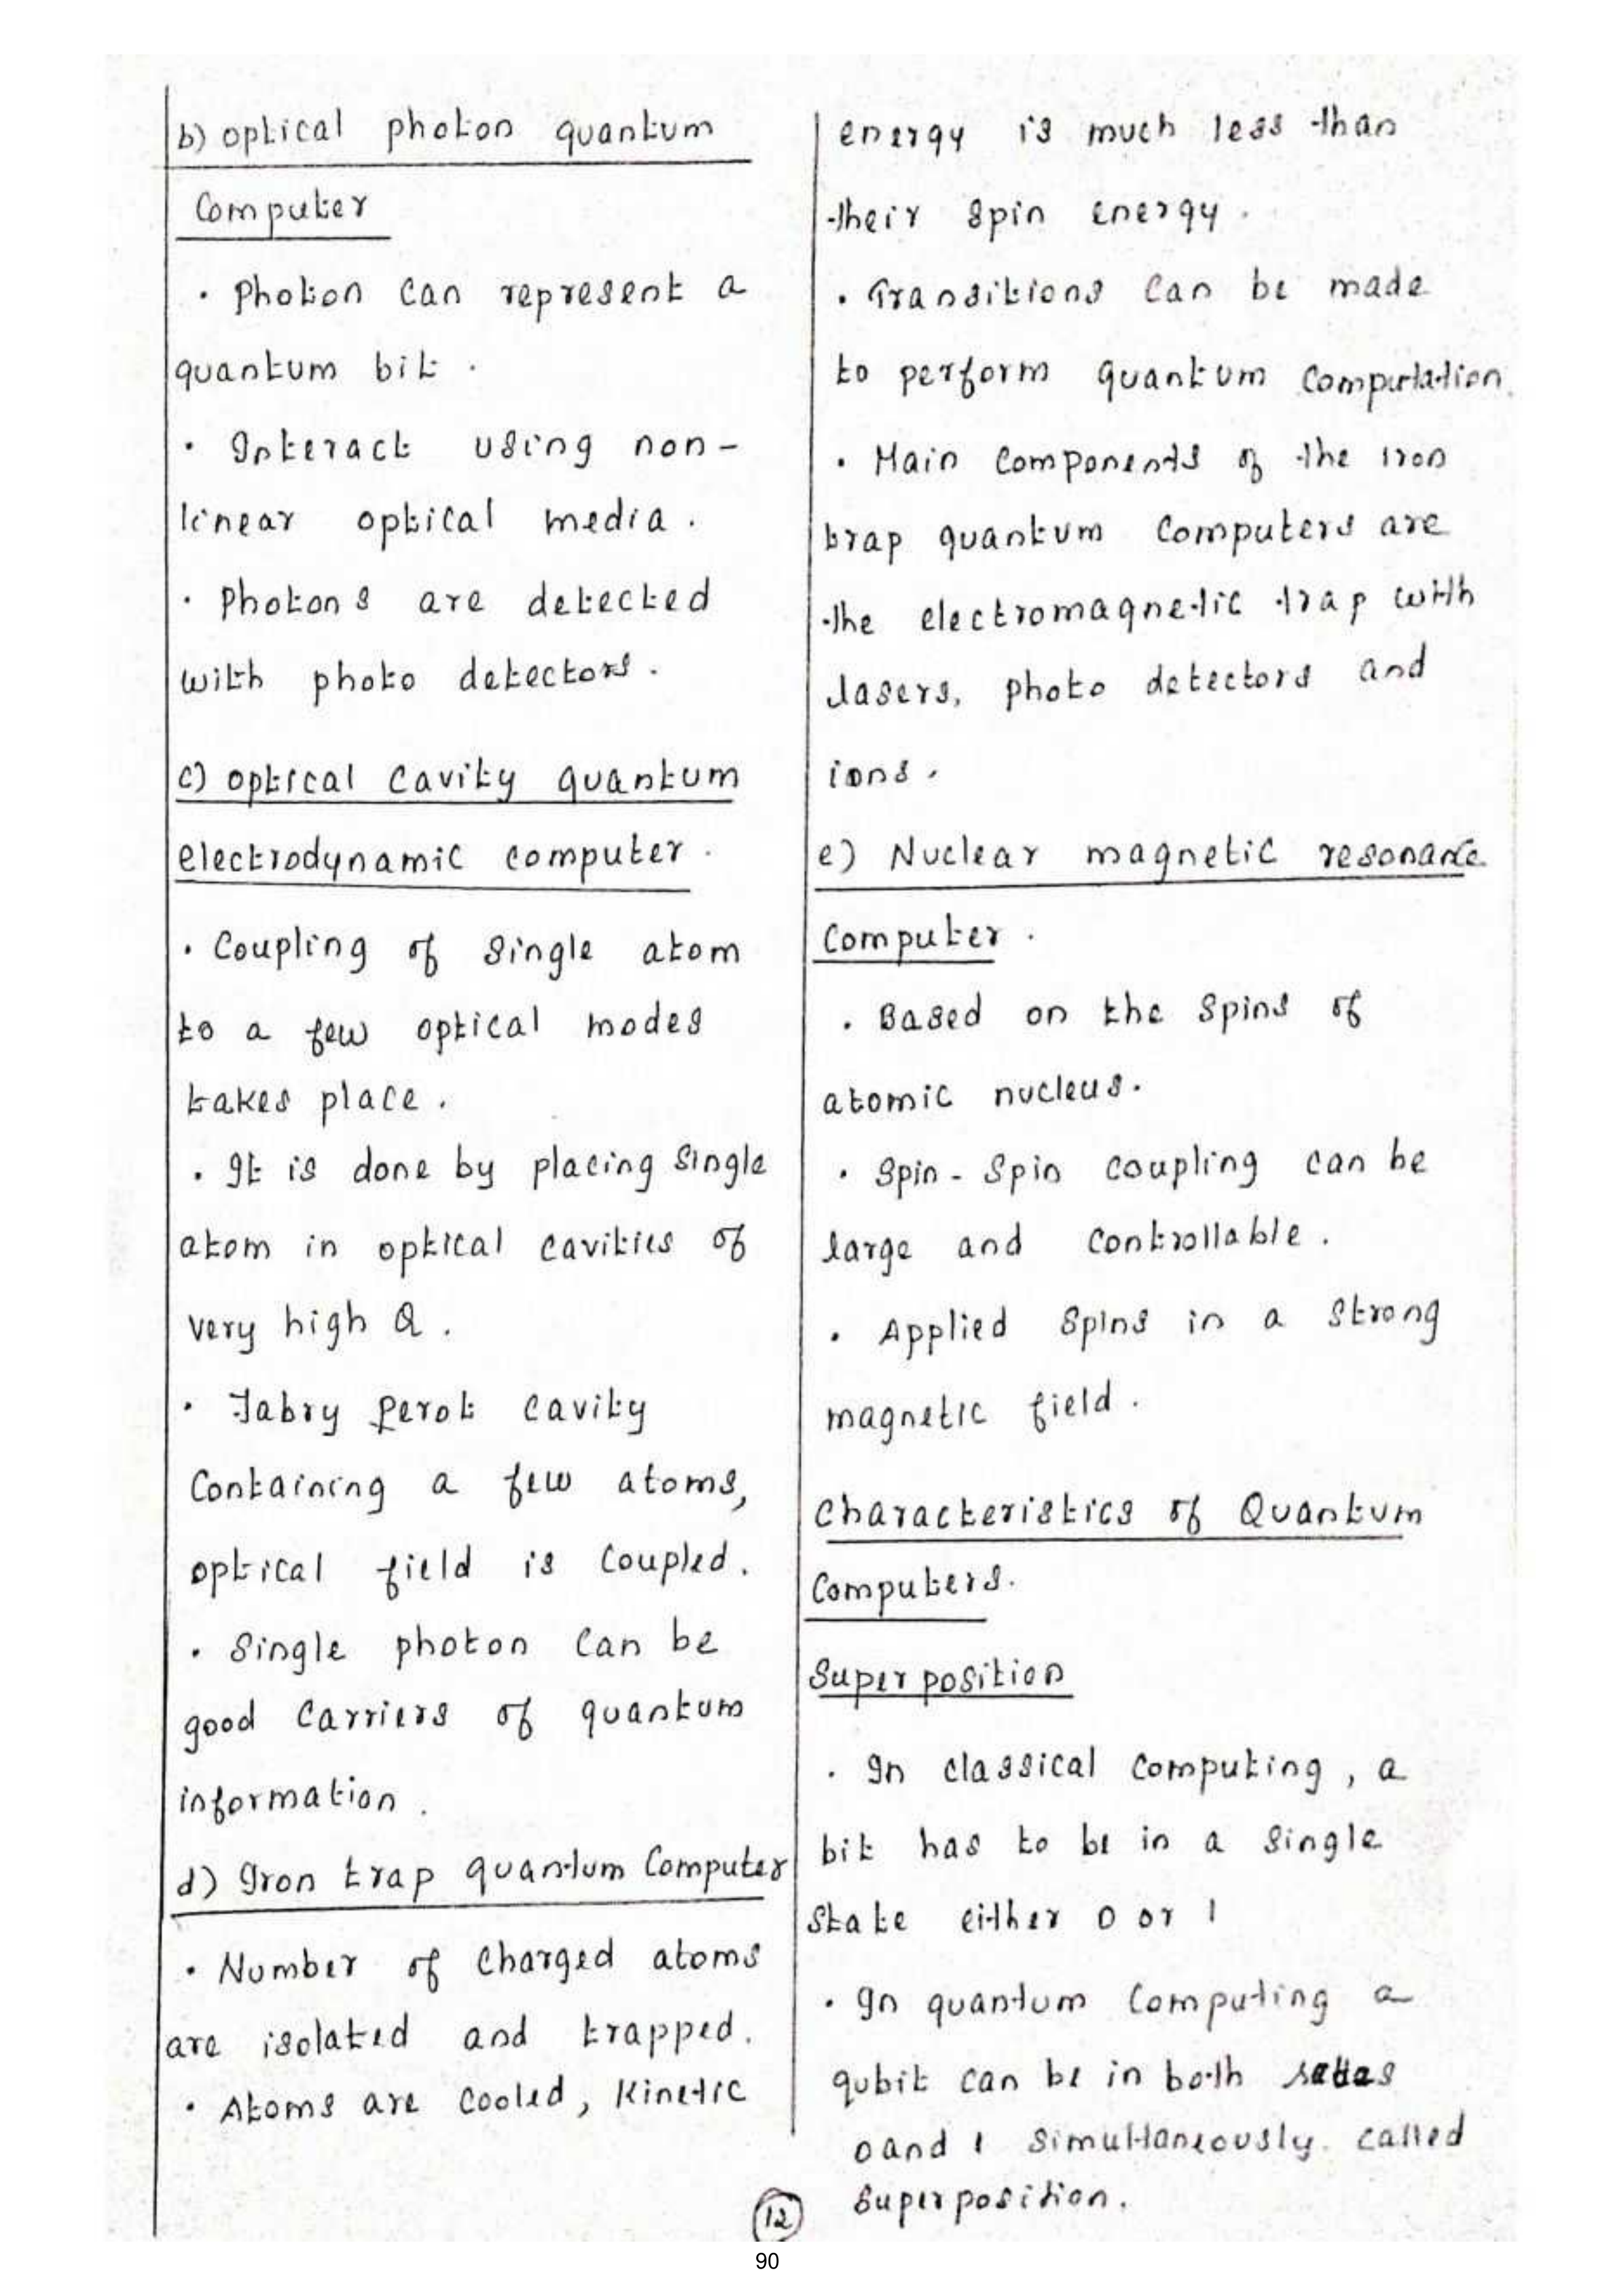 b) optical photon quantum
Computer
· Photon can represent a
quantum bit .
· Interact using non-
linear optical media .
· Photons are detected
with photo detectors .
c) optical cavity quantum
electrodynamic computer .
· Coupling of single atom
to a few optical modes
takes place .
· It is done by placing single
atom in optical cavities of
very high Q .
· Fabry perot cavity
Containing a few atoms,
optical field is coupled .
· Single photon can be
good carriers of quantum
information .
d) Iron trap quantum Computer
· Number of charged atoms
are isolated and trapped .
· Atoms are cooled, Kinetic
energy is much less than
their spin energy .
· Transitions can be made
to perform quantum computation.
· Main components of the iron
trap quantum computers are
the electromagnetic trap with
lasers, photo detectors and
ions .
e) Nuclear magnetic resonance
Computer .
· Based on the spins of
atomic nucleus .
· Spin - Spin coupling can be
large and controllable .
· Applied spins in a strong
magnetic field .
Characteristics of Quantum
Computers.
Super position
· In classical computing , a
bit has to be in a single
state either 0 or 1
· In quantum computing a
qubit can be in both
0 and 1 simultaneously. called
superposition.
12
90